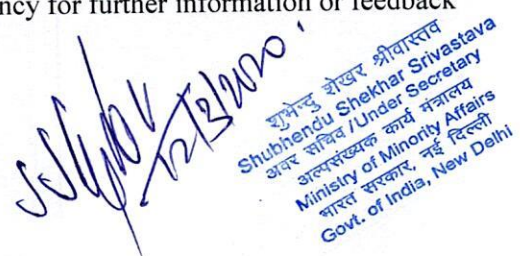 ncy for further information or feedback
12/3/2020
शुभेन्दु शेखर श्रीवास्तव
Shubhendu Shekhar Srivastava
अवर सचिव /Under Secretary
अल्पसंख्यक कार्य मंत्रालय
Ministry of Minority Affairs
भारत सरकार, नई दिल्ली
Govt. of India, New Delhi